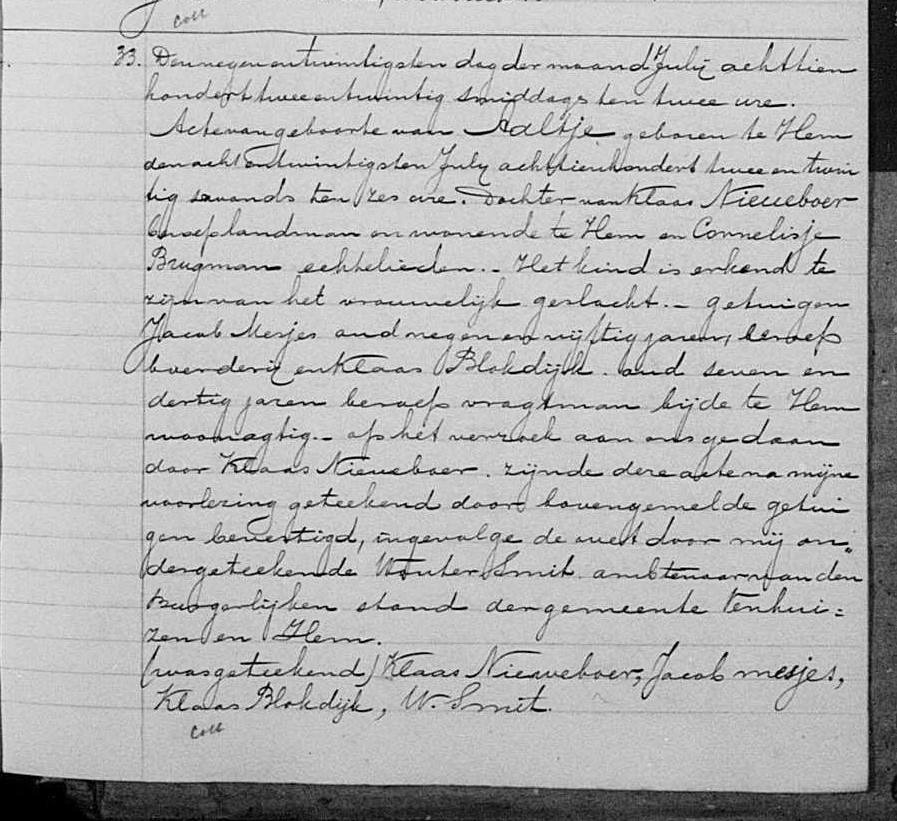 Coll
33. Den negen en twintigsten dag der maand July achttien
hondert twee en twintig smiddags ten twee ure.
Acte van geboorte van Aaltje geboren te Hem
den acht en twintigsten July achttienhondert twee en twin
tig savonds ten zes ure. Dochter van Klaas Nieuweboer
beroep landman en wonende te Hem en Cornelisje
Brugman echtelieden. - Het kind is erkend te
zijn van het vrouwelijk geslacht. - getuigen
Jacob Mesjes oud negen en vijftig jaren, beroep
boerderij en Klaas Blokdijk. oud seven en
dertig jaren beroep vragtman bijde te Hem
woonagtig. - op het verzoek aan ons gedaan
door Klaas Nieuweboer. zijnde deze acte na mijne
voorlezing geteekend door bovengemelde getui
gen bevestigd, ingevolge de wet door mij on„
dergeteekende Wouter Smit. ambtenaar van den
Burgerlijken stand der gemeente Venhui=
zen en Hem.
(was geteekend) Klaas Nieuweboer, Jacob mesjes,
Klaas Blokdijk, W. Smit.
Coll